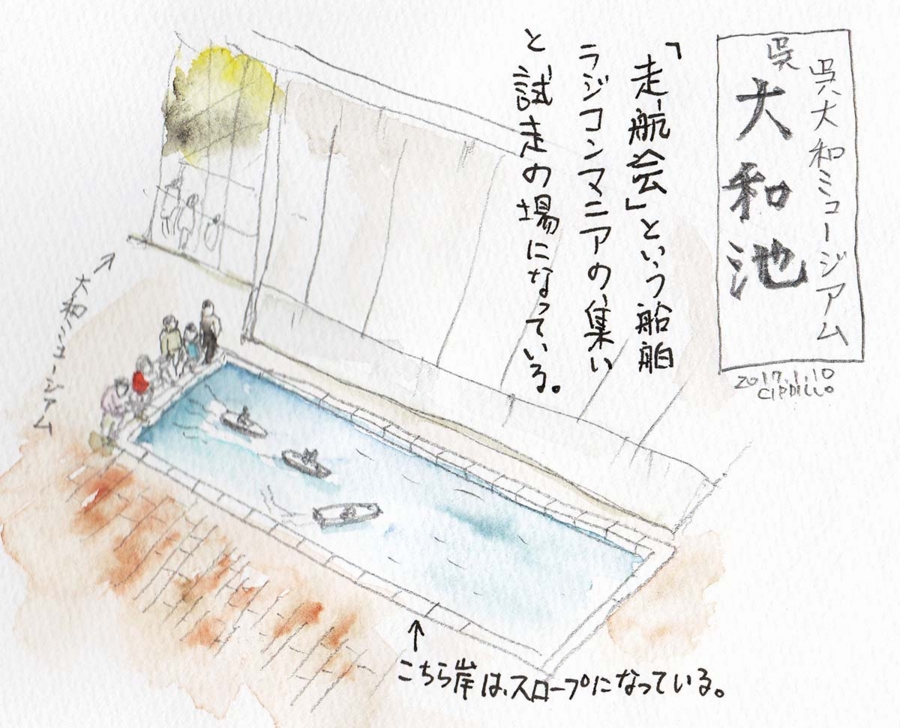 呉大和ミュージアム
呉
大和池
2017.1.10
CIPDILLO
「走航会」という船舶
ラジコンマニアの集い
と試走の場になっている。
↗大和ミュージアム
↑
こちら岸は、スロープになっている。